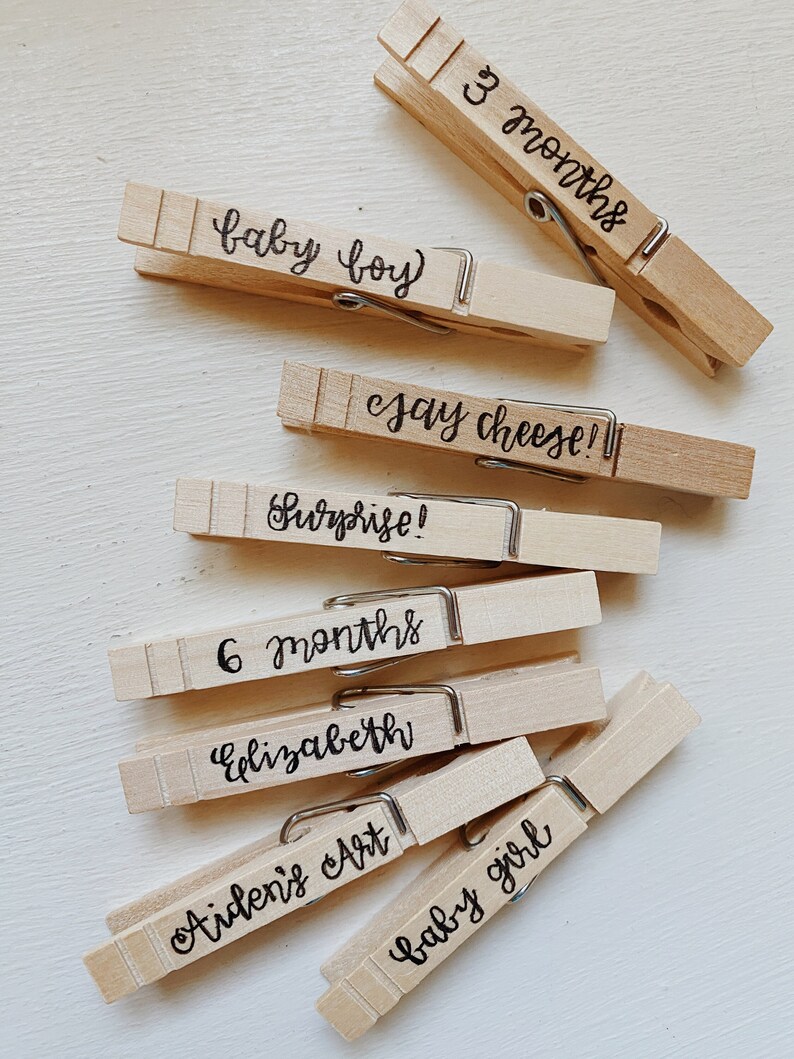 3 months
baby boy
Say cheese!
Surprise!
6 months
Elizabeth
Aiden's Art
baby girl